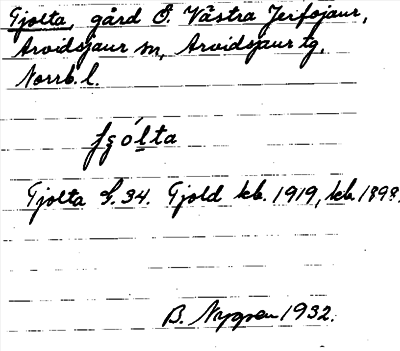 Gjolta, gård Ö. Västra Jerfojaur,
Arvidsjaur sn, Arvidsjaur tg.
Norrb. l.
Gjolta S. 34. Gjold kb. 1919, kb. 1898.
B. Nygren 1932.